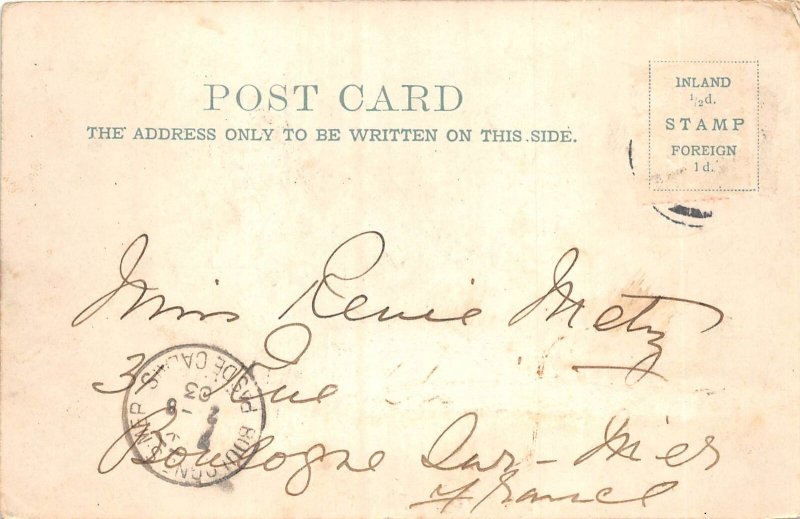 POST CARD
THE ADDRESS ONLY TO BE WRITTEN ON THIS SIDE.
INLAND
½d.
STAMP
FOREIGN
1d.
Miss Renie Metz
3 Rue
Boulogne Sur-Mer
France
BOULOGNE S. MER PAS DE CALAIS
03